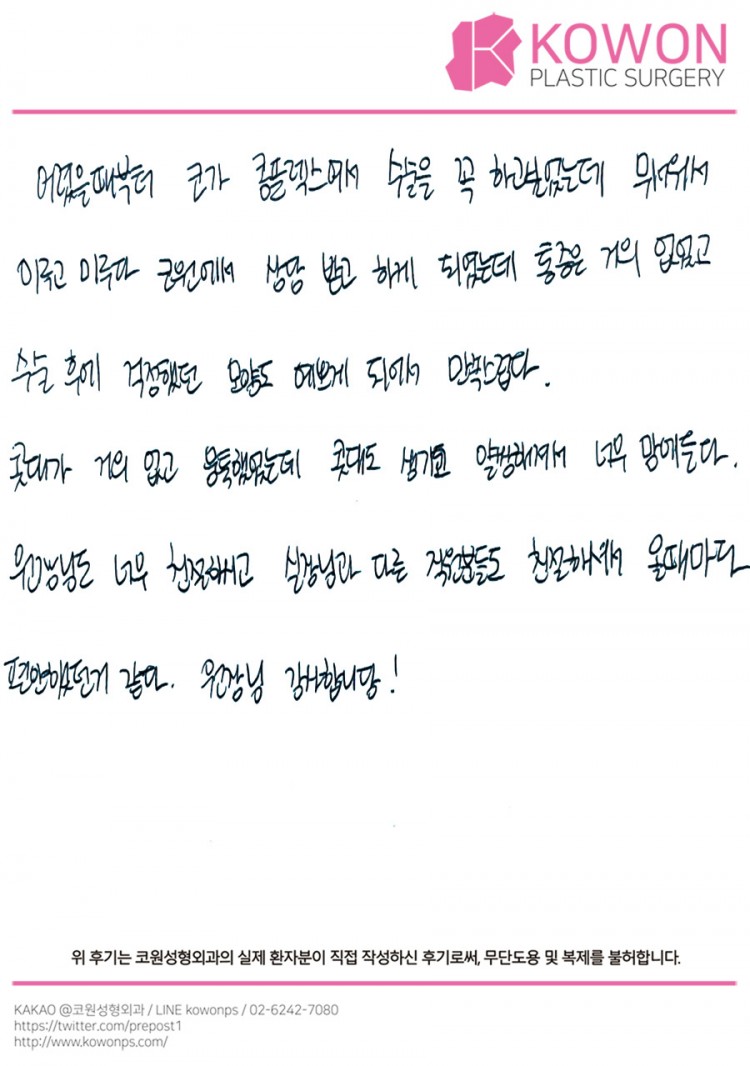 KOWON
PLASTIC SURGERY
어렸을때부터 코가 콤플렉스여서 수술을 꼭 하고싶었는데 무서워서
미루고 미루다 코원에서 상담 받고 하게 되었는데 통증은 거의 없었고
수술 후에 걱정했던 모양도 예쁘게 되어서 만족스럽다.
콧대가 거의 없고 뭉툭했었는데 콧대도 생기고 얄쌍해져서 너무 맘에든다.
원장님도 너무 친절하시고 실장님과 다른 직원분들도 친절하셔서 올때마다
편안했던거 같다. 원장님 감사합니당!
위 후기는 코원성형외과의 실제 환자분이 직접 작성하신 후기로써, 무단도용 및 복제를 불허합니다.
KAKAO @코원성형외과 / LINE kowonps / 02-6242-7080
https://twitter.com/prepost1
http://www.kowonps.com/